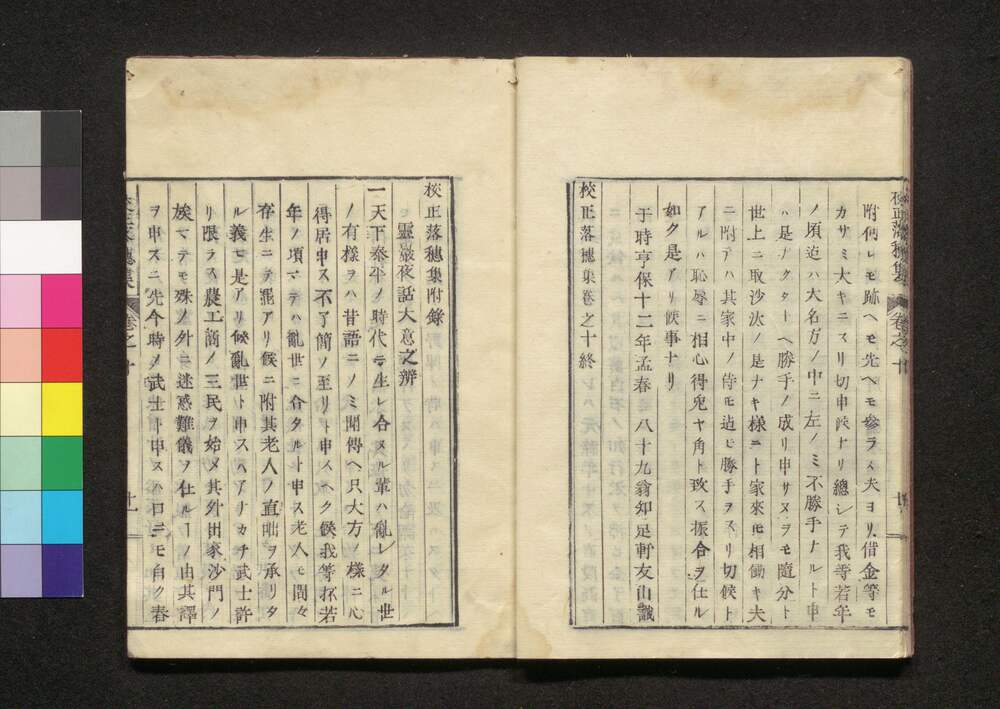 校正落穗集 卷之十
附倒レモ跡ヘモ先ヘモ參ラス夫ヨリ借金等モ
カサミ大キニスリ切申候ナリ總シテ我等若年
ノ頃迄ハ大名方ノ中ニ左ノミ不勝手ナルト申
ハ是ナクター ヘ勝手ノ成リ申サヌヲモ隨分ト
世上ニ取沙汰ノ是ナキ様ニト家來モ相働キ夫
ニ附テハ其家中ノ侍モ迄ヒ勝手ヲスリ切候ト
アルハ恥辱ニ相心得兎ヤ角ト致ス振合ヲ仕ル
如ク是アリ候事ナリ
于時亨保十二年孟春 八十九翁知足軒友山識
校正落穗集卷之十終
校正落穗集附錄
靈巖夜話大意之辨
一天下泰平ノ時代ニ生レ合スル輩ハ亂レタル世
ノ有樣ヲハ昔語ニノミ聞傳ヘ只大方ノ樣ニ心
得居申ス不了簡ノ至リト申スヘク候我等抔若
年ノ項マテハ亂世ニ合タルト申ス老人モ間々
存生ニテ罷アリ候ニ附其老人ノ直咄ヲ承リタ
ル義モ是アリ候亂世ト申スハアナカチ武士許
リ限ラス農工商ノ三民ヲ始メ其外出家沙門ノ
族マテモ殊ノ外ニ迷惑難儀ヲ仕ルヿノ由其譯
ヲ申スニ先今時ノ武士ト申スハ口ニモ白ク舂
校正落穗集 卷之十